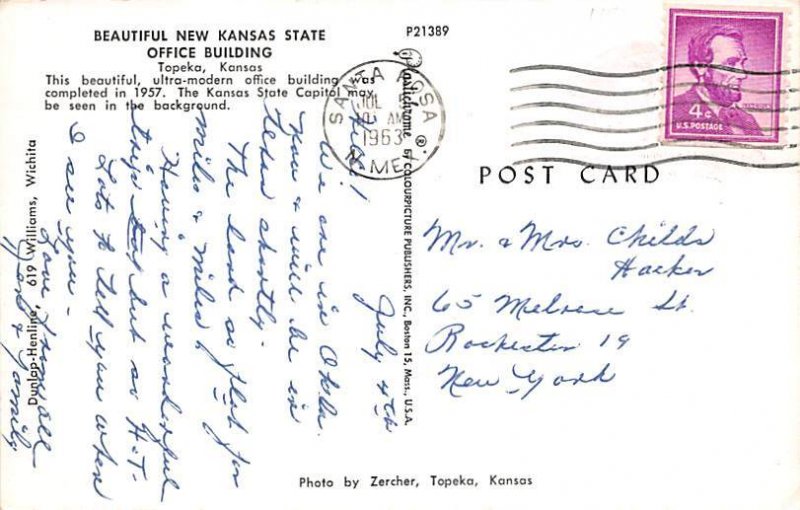 BEAUTIFUL NEW KANSAS STATE
OFFICE BUILDING
Topeka, Kansas
This beautiful, ultra-modern office building was
completed in 1957. The Kansas State Capitol may
be seen in the background.
P21389
SANTA ROSA
JUL
AM
1963
N. MEX.
4¢
U.S. POSTAGE
POST CARD
Plastichrome ® BY COLOURPICTURE PUBLISHERS, INC., Boston 15, Mass., U.S.A.
Dunlap-Henline, 619 Williams, Wichita
July 4th
Hello!
We are in Okla.
now & will be in
Texas shortly.
The land so flat for
miles & miles!
Having a wonderful
trip but so Hot-
Lots to tell you when
I see you-
Love from all
& Family
Mr. & Mrs. Childs
Hacker
65 Melrose St.
Rochester 19
New York
Photo by Zercher, Topeka, Kansas